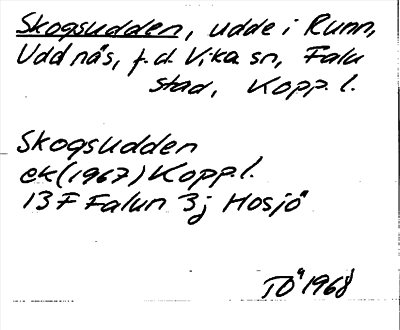 Skogsudden, udde i Runn,
Uddnäs, f.d. Vika sn, Falu
stad, Kopp. l.
Skogsudden
ek (1967) Kopp. l.
13 F Falun 3j Hosjö
TÖ 1968